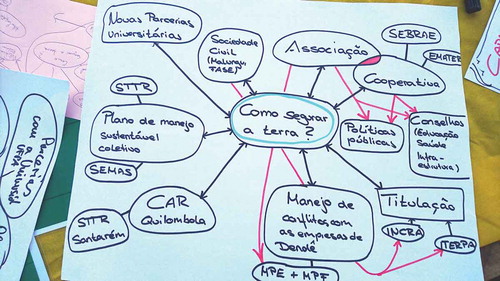 Novas Parcerias
Universitárias
Sociedade
Civil
(Malungu
FASE)
Associação
SEBRAE
EMATER
Cooperativa
STTR
Plano de manejo
sustentável
coletivo
SEMAS
Como segurar
a terra?
Políticas
públicas
Conselhos
(Educação
Saúde
Infra-
estrutura)
CAR
Quilombola
STTR
Santarém
Manejo de
conflitos com
as empresas de
Dendê
MPE + MPF
Titulação
INCRA
ITERPA
Parcerias
com a